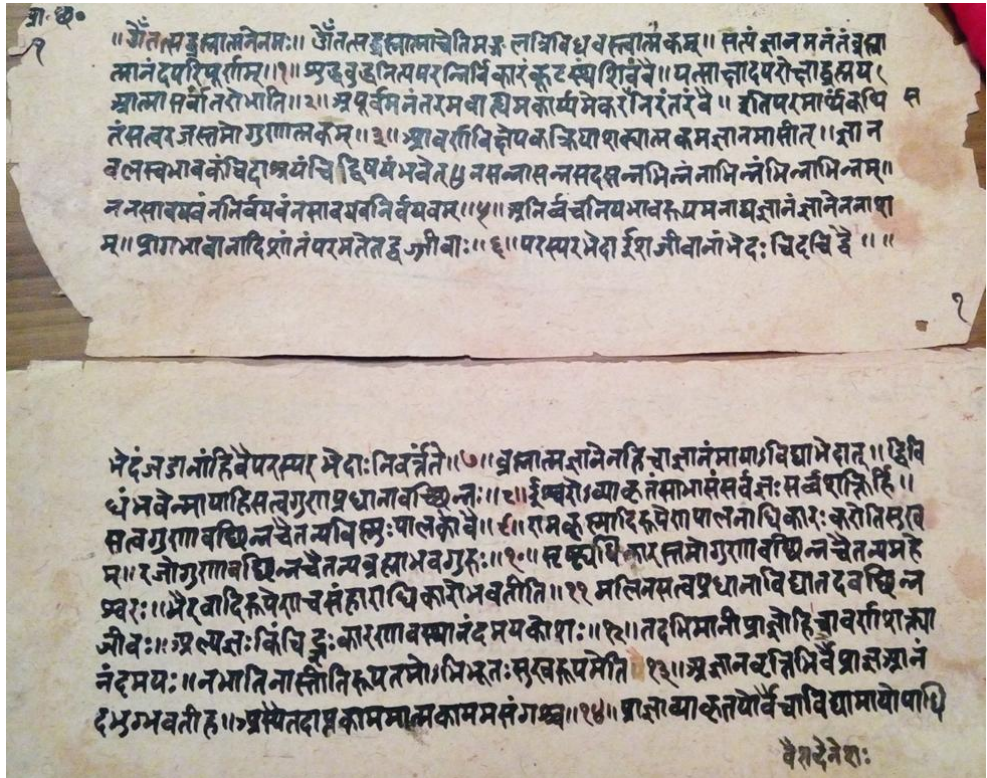 १
॥ ॐतत्सद्ब्रह्मात्मनेनमः॥ ॐतत्सद्ब्रह्मात्माचेति त्रिविधवस्त्वात्मकम्॥ सत्यंज्ञानमनंतंब्रह्मा
त्मानंदपरिपूर्णम्॥१॥ शुद्धबुद्धनित्यपरन्निर्विकारंकूटस्थंशिवंवै॥ यत्साक्षादपरोक्षाद्ब्रह्मयए
आत्मा सर्वांतरोभाति॥२॥ अपूर्वमनंतरमबाह्यमकार्य्यमेकरंनिरंतरंवै॥ इतिपरमार्थकथि
तंसत्वरजस्तमोगुणात्मकम्॥३॥ आवर्णविक्षेपकक्रियाशक्त्यात्मकमज्ञानमासीत्॥ज्ञान
वलस्वभावकंचिदाश्रयंचिद्विषयंभवेत्४ नसन्नासन्नसदसन्नभिन्नंनाभिन्नंभिन्नाभिन्नम्॥
ननसावयवंननिर्वयवंनसावयवनिर्वयवम्॥५॥ अनिर्वचनियभावरूपमनाद्यज्ञानंज्ञानेननाश
म्॥ प्रागभावानादिशांतंपरमतेतद्वज्जीवाः॥६॥ परस्परभेदाईशजीवानांभेदःचिदचिद्वै॥॥
१
भेदंजडानांहिवैपरस्परभेदाःनिवर्त्तते॥७॥ ब्रह्मात्मज्ञानेनहिचाज्ञानंमामाऽविद्याभेदात्॥द्विवि
धंभवेन्मायाहिसत्वगुणप्रधानावच्छिन्नः॥८॥ ईश्वरोऽव्याकृतंसाभासंसर्वज्ञःसर्व्वशक्तिर्हि॥
सत्वगुणावच्छिन्नचैतन्यविस्नुःपालकोवै॥९॥ रामकृस्मादिरूपेणपालनाधिकारःकरोतिसुख
म्॥ रजोगुणावच्छिन्नचैतन्यब्रह्माभवगुरुः॥१०॥ सृष्ट्यधिकारस्तमोगुणावच्छिन्नचैतन्यमहे
श्वरः॥भैरवादिरूपेणचसंहाराधिकारोभवतीति॥११ मलिनसत्वप्रधानाविद्यातदवच्छिन्न
जीवः॥अल्पज्ञःकिंचिद्ज्ञःकारणावस्थानंदमयकोशः॥१२॥ तदभिमानीप्राज्ञोहिचावर्णशक्त्या
नंदमयः॥नभातिनास्तीतिरूपतमोऽभिभूतःसुखरूपमेति १३॥अज्ञानवृत्तिभिर्वैप्राज्ञआनं
दभुग्भवतीह॥ कामममात्मकाममसंगश्च॥१४॥ प्राज्ञाव्याकृतयोर्वैचाविद्यामायोपाधि